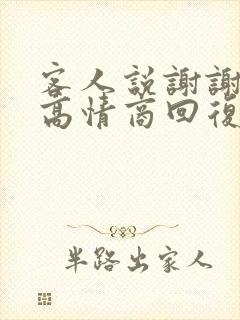 客人説謝謝
高情商回復
半路出家人